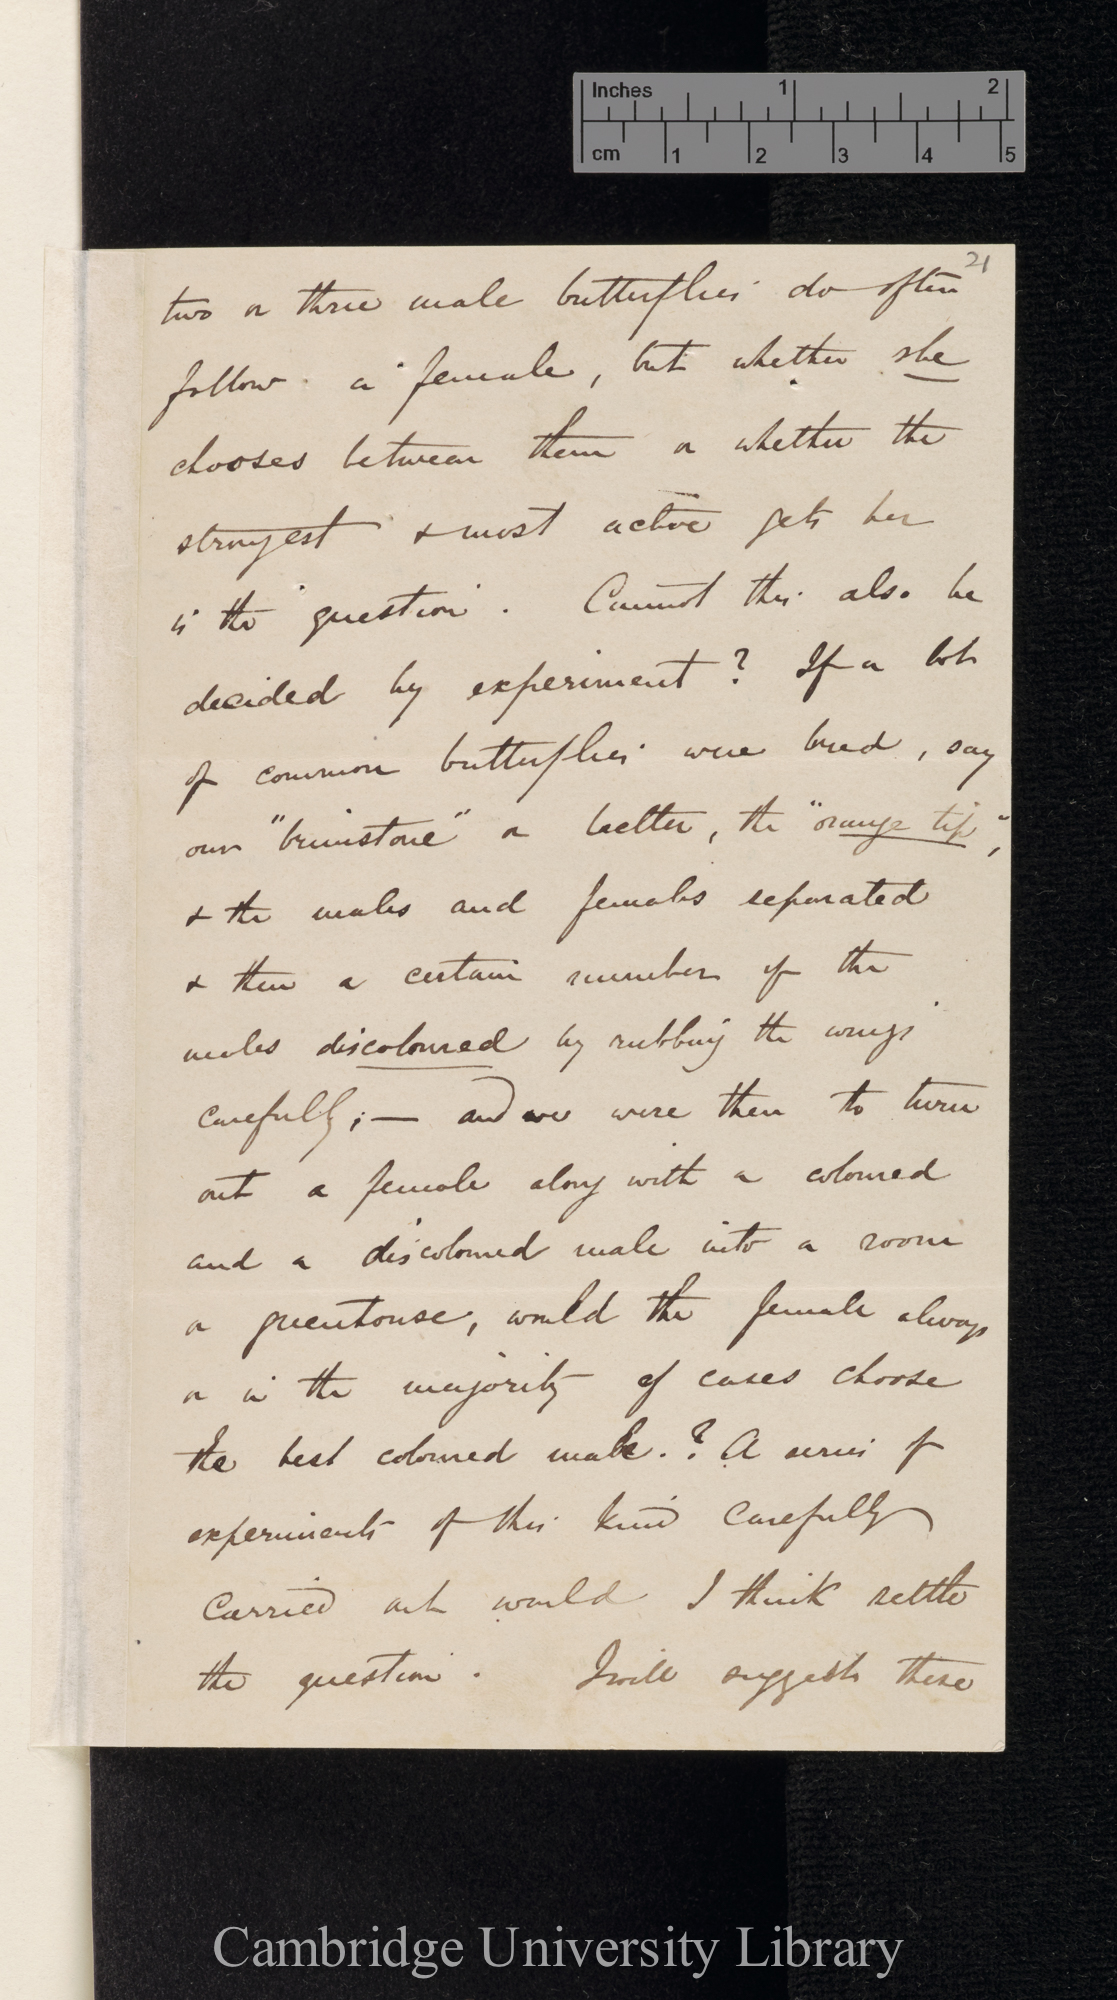 Inches 1 2
cm 1 2 3 4 5
21
two or three male butterflies do often
follow a female, but whether she
chooses between them or whether the
strongest & most active gets her
is the question. Cannot this also be
decided by experiment? If a lot
of common butterflies were bred, say
our "brimstone" or better, the "orange tip",
& the males and females separated
& then a certain number of the
males discoloured by rubbing the wings
carefully; — and we were then to turn
out a female along with a coloured
and a discoloured male into a room
or greenhouse, would the female always
or in the majority of cases choose
the best coloured male.? A series of
experiments of this kind carefully
carried out would I think settle
the question. I will suggest these
Cambridge University Library